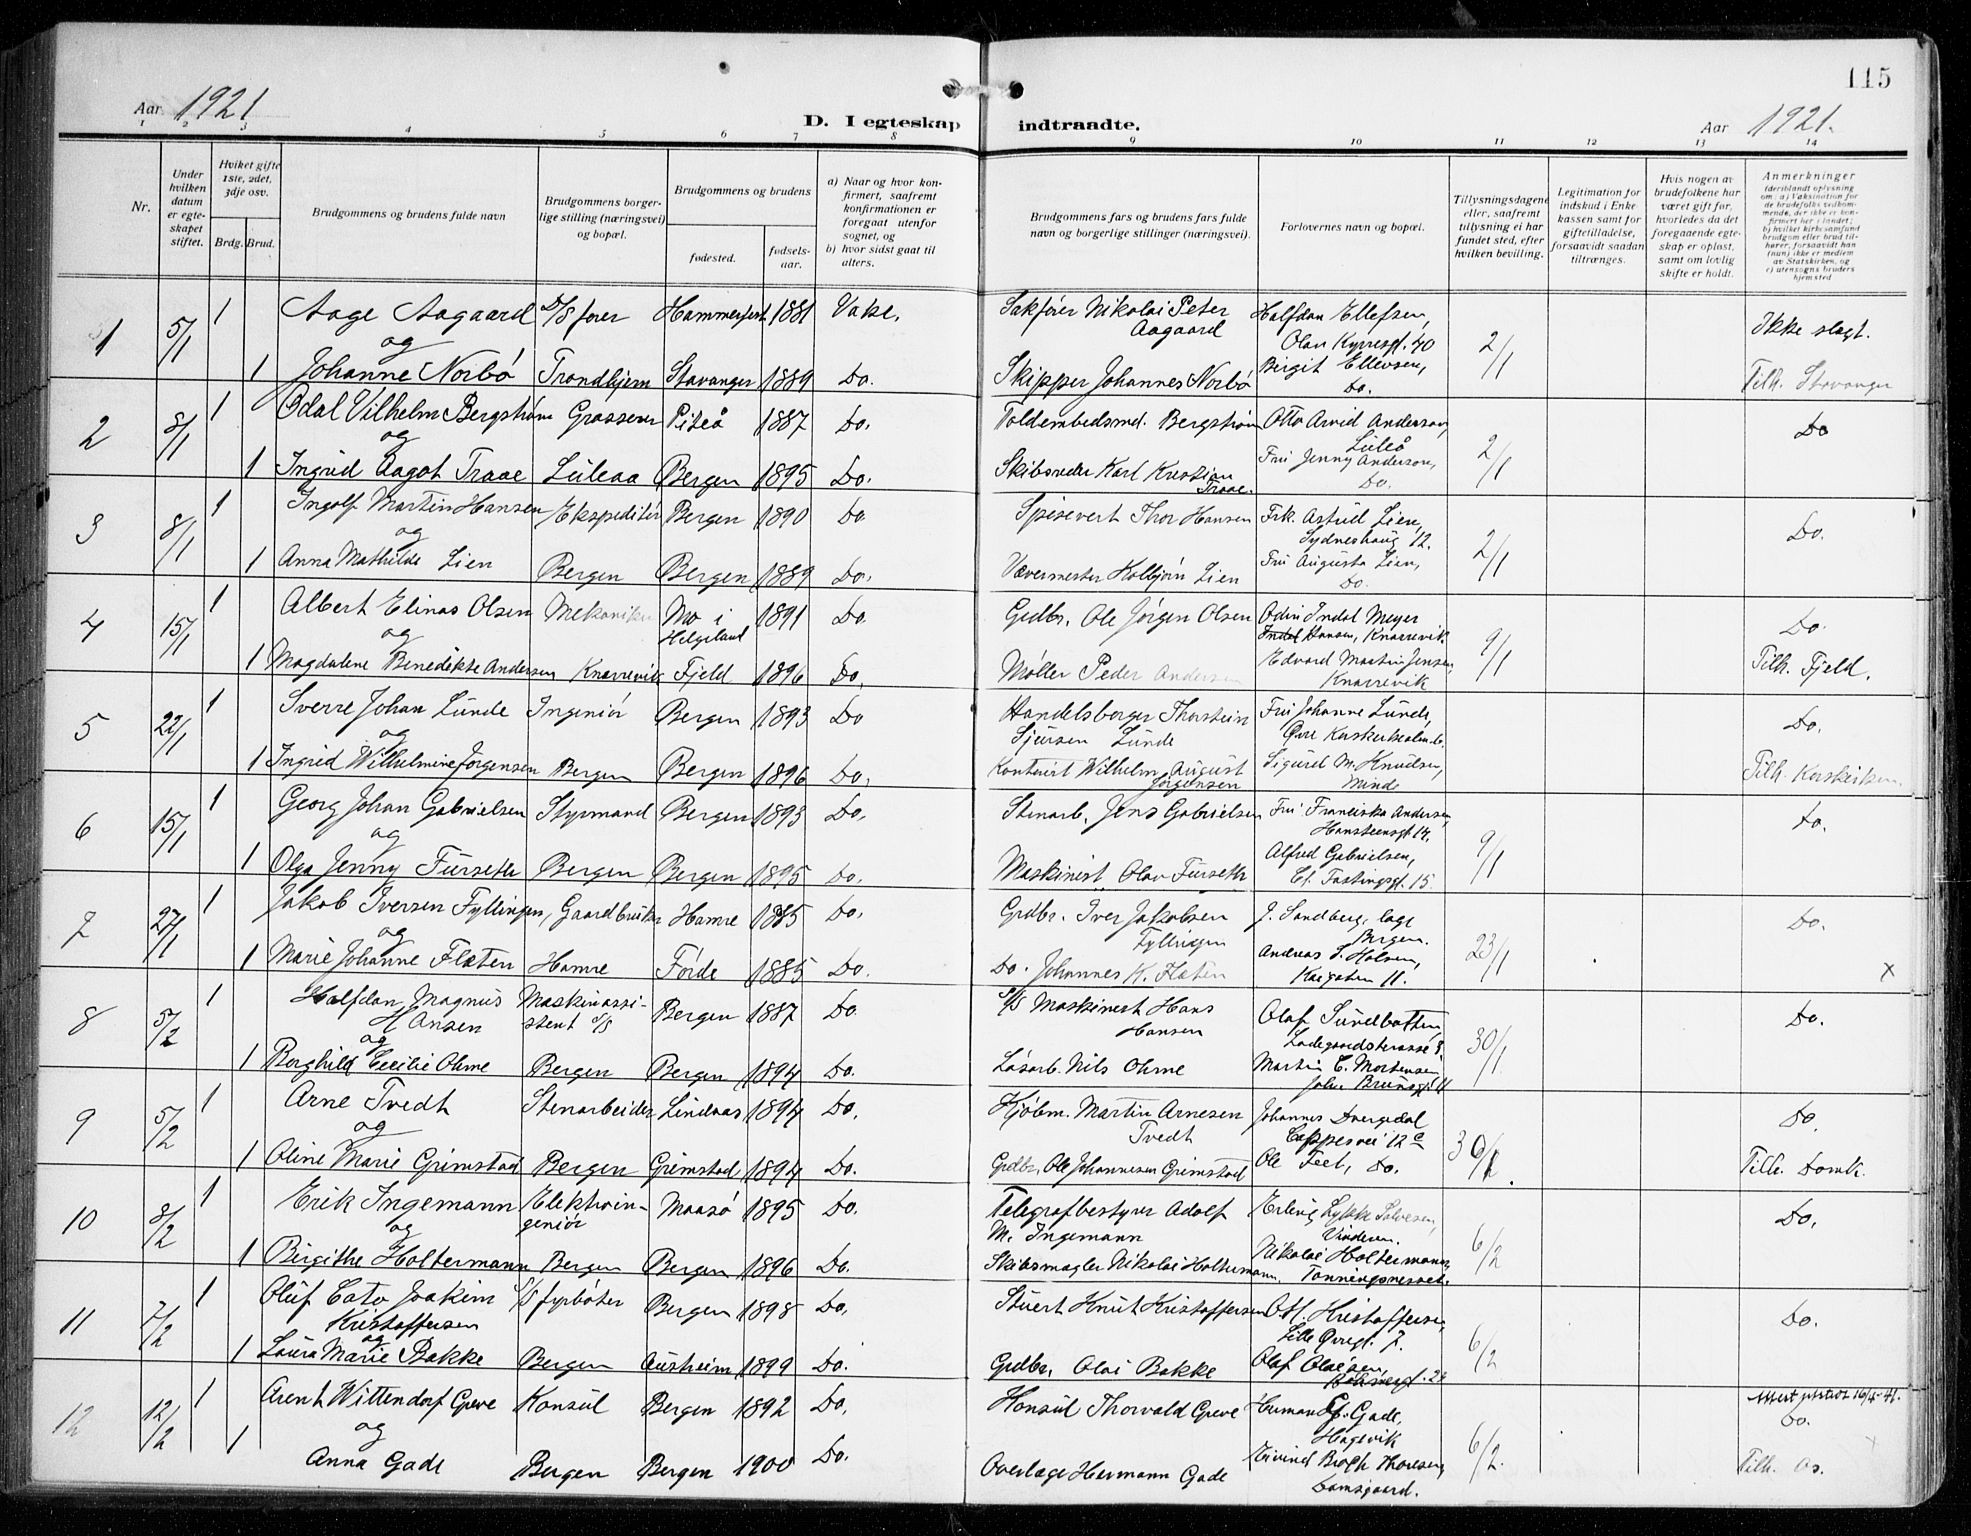 115
Aar 1921
D. I egteskap indtraadte.
Aar 1921.
1 2 3 4 5 6 7 8 9 10 11 12 13 14
Nr.
Under hvilken datum er egteskapet stiftet.
Hvilket gifte 1ste, 2det, 3dje osv.
Brdg. Brud.
Brudgommens og brudens fulde navn
Brudgommens borgerlige stilling (næringsvei) og bopæl.
Brudgommens og brudens
fødested.
fødselsaar.
a) Naar og hvor konfirmert, saafremt konfirmationen er foregaat utenfor sognet, og
b) hvor sidst gaat til alters.
Brudgommens fars og brudens fars fulde navn og borgerlige stillinger (næringsvei).
Forlovernes navn og bopæl.
Tillysningsdagene eller, saafremt tillysning ei har fundet sted, efter hvilken bevilling.
Legitimation for indskud i Enkekassen samt for giftetilladelse, forsaavidt saadan tiltrænges.
Hvis nogen av brudefolkene har været gift før, hvorledes da det foregaaende egteskap er opløst, samt om lovlig skifte er holdt.
Anmerkninger (deriblandt oplysning om: a) Vaksination for de brudefolks vedkommende, der ikke er konfirmert her i landet; b) hvilket kirkesamfund brudgom eller brud tilhører, forsaavidt han (hun) ikke er medlem av Statskirken, og c) utensogns bruders hjemsted
1 5/1 1 Aage Aagaard D/S fører Hammerfest 1881 Vake. Sakfører Nikolai Peter Aagaard Halfdan Ellefsen, Olav Kyrresgt. 40 2/1 Ikke slegt.
og
1 Johanne Norbø Trondhjem Stavanger 1889 Do. Skipper Johannes Norbø Birgit Ellevsen, Do. Tilh. Stavanger
2 8/1 1 Odal Vilhelm Bergstrøm Grosserer Piteå 1887 Do. Toldembedsmd. Bergstrøm Otto Arvid Anderson, Luleå 2/1 Do
og
1 Ingrid Aagot Traae Luleaa Bergen 1895 Do. Skibsreder Karl Kristian Traae. Fru Jenny Anderson, Do.
3 8/1 1 Ingolf Martin Hansen Ekspeditør Bergen 1890 Do Spisevert Thor Hansen Frk. Astrid Lien, Sydneshaug 12. 2/1 Do.
og
1 Anna Mathilde Lien Bergen Bergen 1889 Do. Vævermester Kolbjørn Lien Fru Augusta Lien, Do.
4 15/1 1 Albert Elinas Olsen Mekaniker Mo i Helgeland 1891 Do Grdbr. Ole Jørgen Olsen Odin Indal Meyer Hansen, Knarrevik. 9/1 Do.
og
1 Magdalene Benedikte Andersen Knarrevik Fjeld 1896 Do. Møller Peder Andersen Edvard Martin Jensen, Knarrevik Tilh. Fjeld.
5 22/1 1 Sverre Johan Lunde Ingeniør Bergen 1893 Do Handelsborger Thorstein Sjursen Lunde Fru Johanne Lunde, Do.
og
1 Ingrid Wilhelmine Jørgensen Bergen Bergen 1896 Do. Kontorist Wilhelm August Jørgensen Sigurd M. Knudsen, Minde Tilh. Korskirken.
6 15/1 1 Georg Johan Gabrielsen Styrmand Bergen 1893 Do. Stenarb. Jens Gabrielsen Fru Franciska Andersen, Hansteensgt. 14. 9/1 Do.
og
1 Olga Jenny Furseth Bergen Bergen 1895 Do. Maskinist Olav Furseth Alfred Gabrielsen, Cl. Fastingsgt. 15.
7 27/1 1 Jakob Iversen Fyllingen, Gaardbruker Hamre 1885 Do. Grdbr. Iver Jakobsen Fyllingen J. Sandberg, Bergen. 23/1 Do.
og
1 Marie Johanne Flaten Hamre Førde 1885 Do. Do. Johannes K. Flaten Andreas S. Holsen, Kaigaten 11. x
8 5/2 1 Halfdan Magnus Hansen Maskinassistent S/S Bergen 1887 Do S/S Maskinest Hans Hansen Olaf Sundbotten, Ladegaardsterasse 8. 30/1 Do.
og
1 Borghild Cecilie Ohme Bergen Bergen 1894 Do. Løsarb. Nils Ohme Martin C. Mortensen John Brunsgt. 11
9 5/2 1 Arne Tvedt Stenarbeider Lindaas 1894 Do. Kjøbm. Martin Arnesen Tvedt Johannes Dvergsdal Cappesvei 12c 30/1. Do.
og
1 Oline Marie Grimstad Bergen Grimstad 1894 Do. Grdbr. Ole Johannesen Grimstad Ole Feet, Do. Tilh. Domk.
10 8/2 1 Erik Ingemann Elektroingeniør Maasø 1895 Do. Telegrafbestyrer Adolf M. Ingemann Erling Lykke Solvesen, Vinderen. 6/2 Do.
og
1 Birgithe Holtermann Bergen Bergen 1896 Do. Skibsmægler Nikolai Holtermann Nikolai Holtermann, Tonningsneset.
11 7/2 1 Oluf Cato Joakim Kristoffersen S/S fyrbøter Bergen 1898 Do. Stuert Knut Kristoffersen Kristoffersen, Lille Øvregt. 7. 6/2 Do.
og
1 Laura Marie Bakke Bergen Austrheim 1899 Do. Grdbr. Olai Bakke Olaf Olaisen,
12 12/2 1 Arent Wittendorf Greve Konsul Bergen 1892 Do. Konsul Thorvald Greve Herman G. Gade, Hagevik 6/2. Attest utstedt 16/5-41. Do.
og
1 Anna Gade Bergen Bergen 1900 Do. Overlæge Hermann Gade Eivind Broch Thoresen, Damsgaard. Tilh. Os.